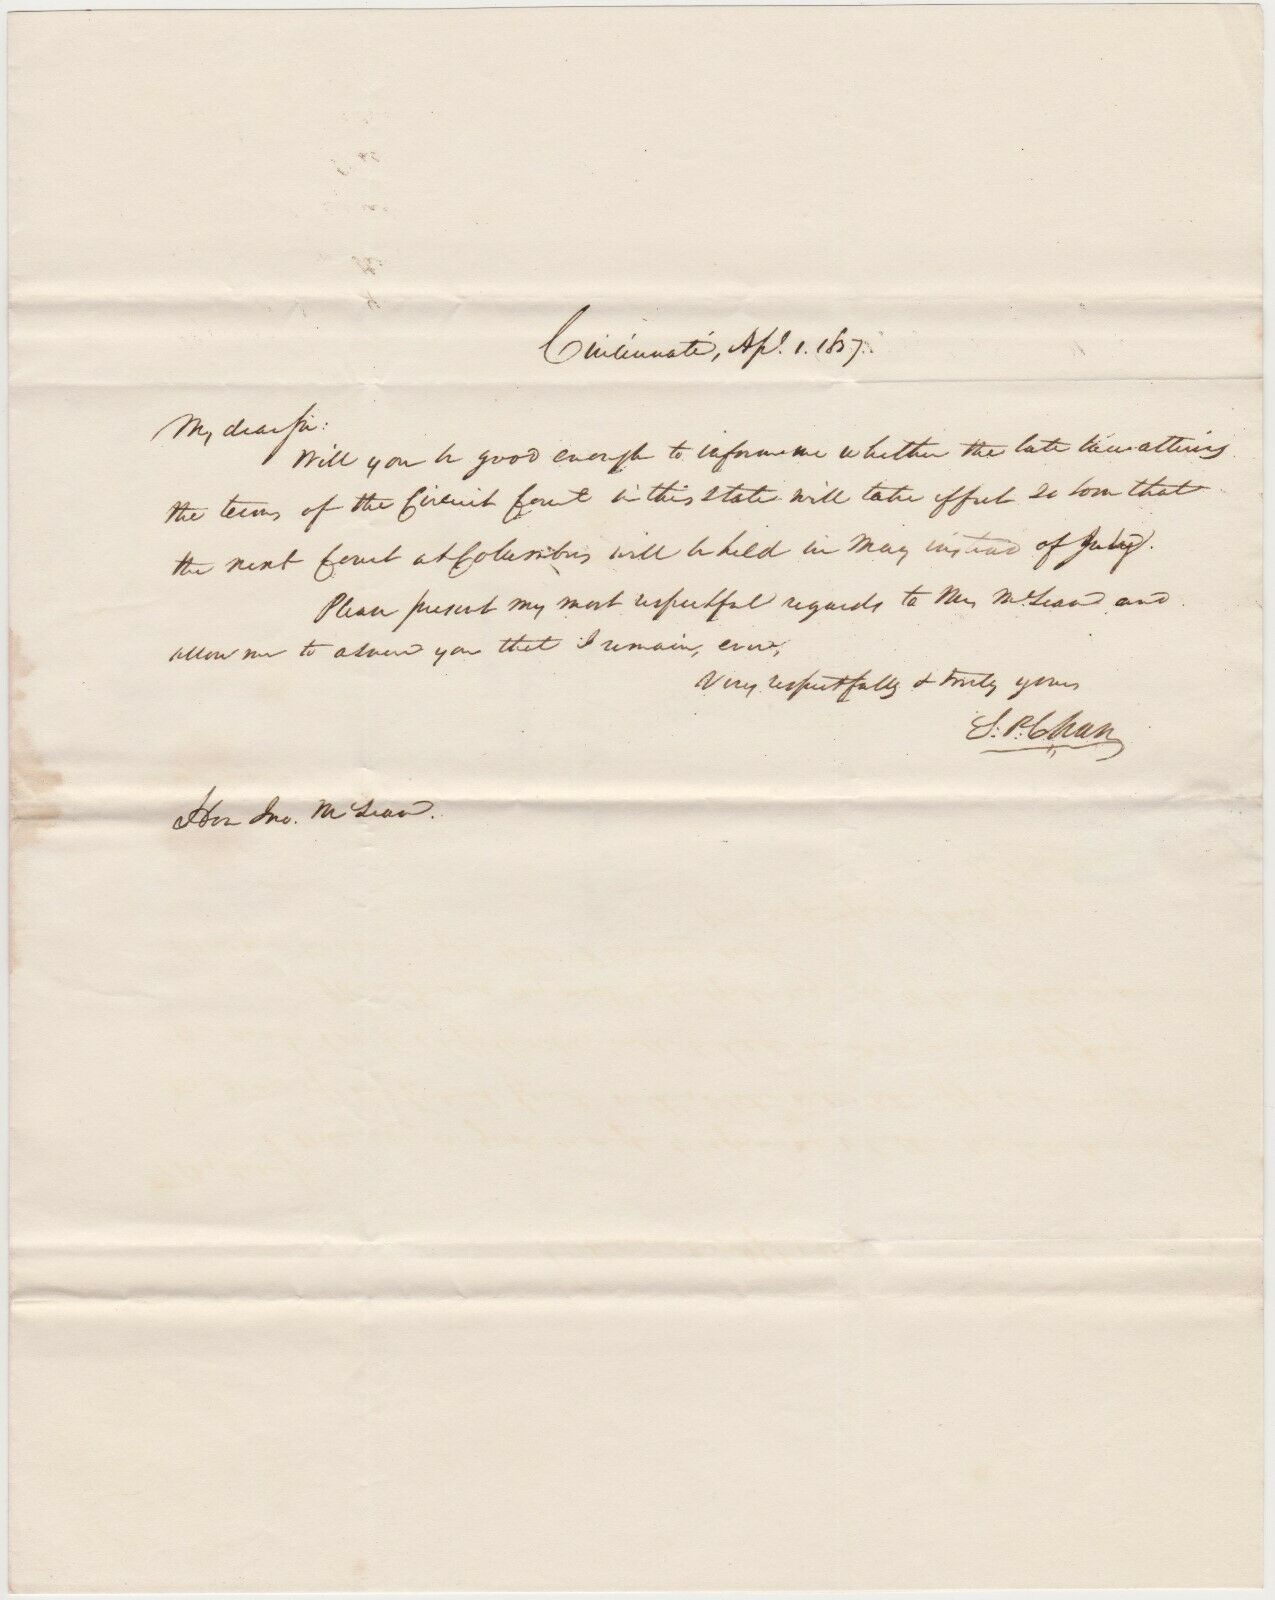 Cincinnati, Apl. 1. 1837.
My dear Sir:
Will you be good enough to inform me whether the late law altering
the terms of the Circuit Court in this State will take effect so soon that
the next Court at Columbus will be held in May instead of July.
Please present my most respectful regards to Mrs McLean and
allow me to assure you that I remain, ever,
Very respectfully & truly yours
S. P. Chase
Hon Jno. McLean.